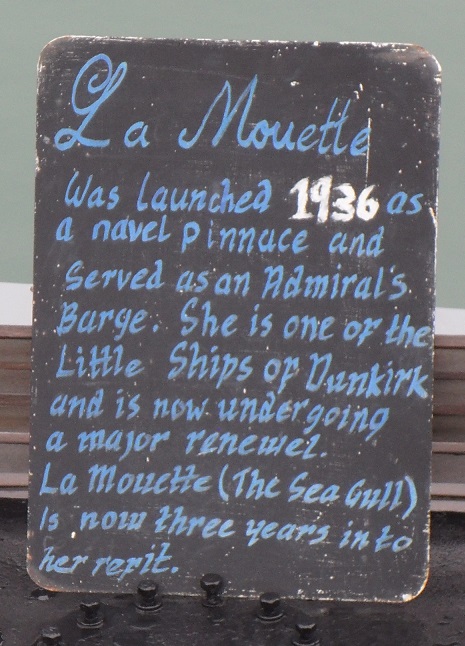 La Mouette
Was Launched 1936 as
a navel Pinnace and
Served as an Admiral's
Barge. She is one of the
Little Ships of Dunkirk
and is now undergoing
a major renewel.
La Mouette (The Sea Gull)
Is now three years in to
her refit.